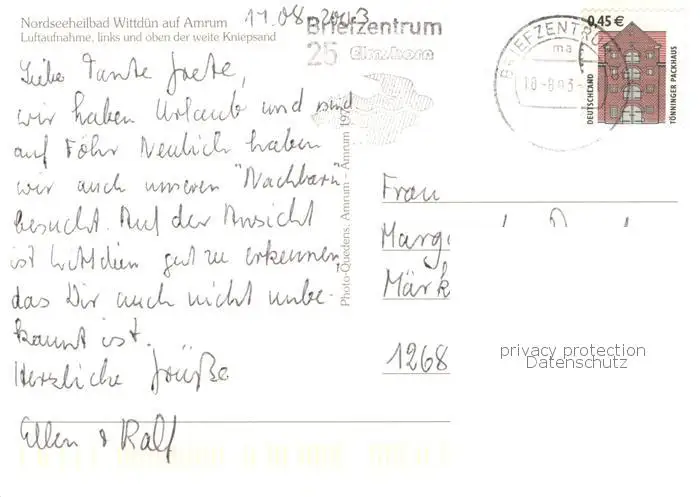 Nordseeheilbad Wittdün auf Amrum
Luftaufnahme, links und oben der weite Kniepsand
11.08.2003
Liebe Tante Grete,
wir haben Urlaub und sind
auf Föhr Neulich haben
wir auch unseren "Nachbarn"
besucht. Auf der Ansicht
ist Wittdün gut zu erkennen,
das Dir auch nicht unbe-
kannt ist.
Herzliche Grüße
Ellen & Ralf
Photo-Quedens, Amrum – Amrum
Briefzentrum
25 Elmshorn
BRIEFZENTRU
ma
0,45 €
DEUTSCHLAND
TÖNNINGER PACKHAUS
Frau
Marg
Märk
1268
privacy protection
Datenschutz